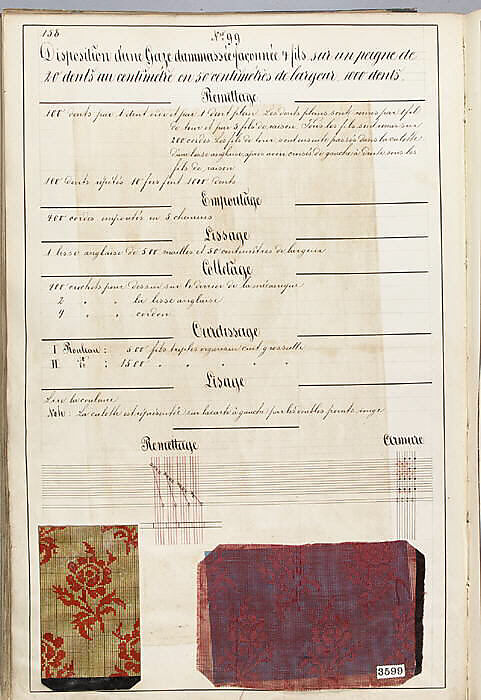 158
N° 99
Disposition d'une Gaze dammassée façonnée 4 fils sur un peigne de
20 dents au centimètre en 50 centimètres de largeur, 1000 dents.
Remettage
100 dents par 1 dent vide et par 1 dent plein. Les dents pleins sont remis par 1 fil
de tour et par 3 fils de raison. Tous les fils sont remis sur
200 cordes. Les fils de tour sont ensuite passés dans la culotte
d'une lisse anglaise, après avoir croisés de gauche à droite sous les
fils de raison
100 dents répétés 10 fois font 1000 dents
Empoutage
400 cordes empoutés en 8 chemins
Lissage
1 lisse anglaise de 500 mailles et 50 centimètres de largeur
Colletage
200 crochets pour dessin sur le derrier de la mécanique
2 " " la lisse anglaise
4 " " cordon
Ourdissage
I Rouleau : 500 fils triples organsin cuit grossulle
II d° : 1500 " " " "
Lisage
Lire la couleur
Note : La culotte est à gauche par les doubles points rouge
Remettage
Armure
3599